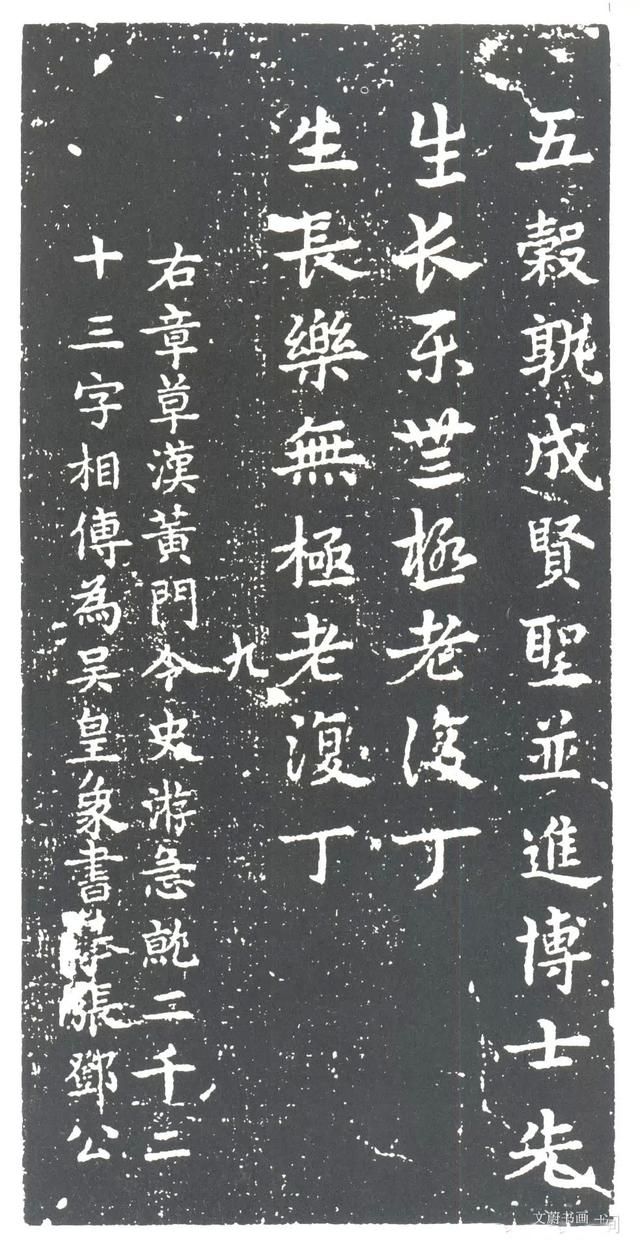 五穀孰成賢聖並進博士先
生长乐無極老復丁
生長樂無極老復丁
九
右章草漢黃門令史游急就二千二
十三字相傳為吴皇象書摹張鄧公
文蔚书画